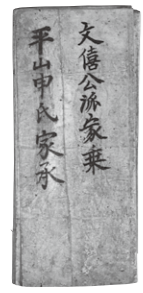 文僖公派家乘
平山申氏家承